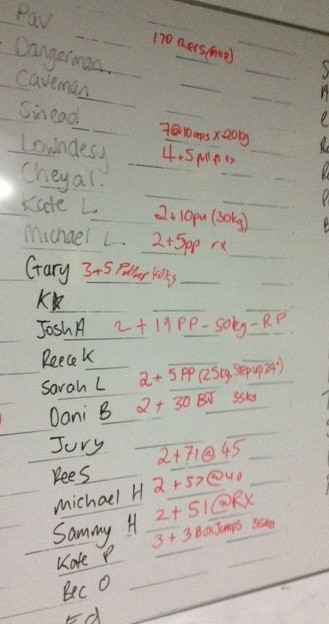 Pav 170 Reps (mod)
Dangerman
Caveman
Sinead 7@10 reps x 20kg
Lowndesy 4+5 pull ups
Cheyal.
Kate L 2+10pu (30kg)
Michael L. 2+5pp rx
Gary 3+5 40kg
KK
Josh A 2 + 19 PP - 50kg - RP
Reece K
Sarah L 2 + 5 PP (25kg, Step up 24")
Dani B 2 + 30 BJ 35kg
Jury
Ree S 2+71@45
Michael H 2+57@40
Sammy H 2+51@RX
Kate P 3+3 Box Jumps 35kg
Bec O
Ed